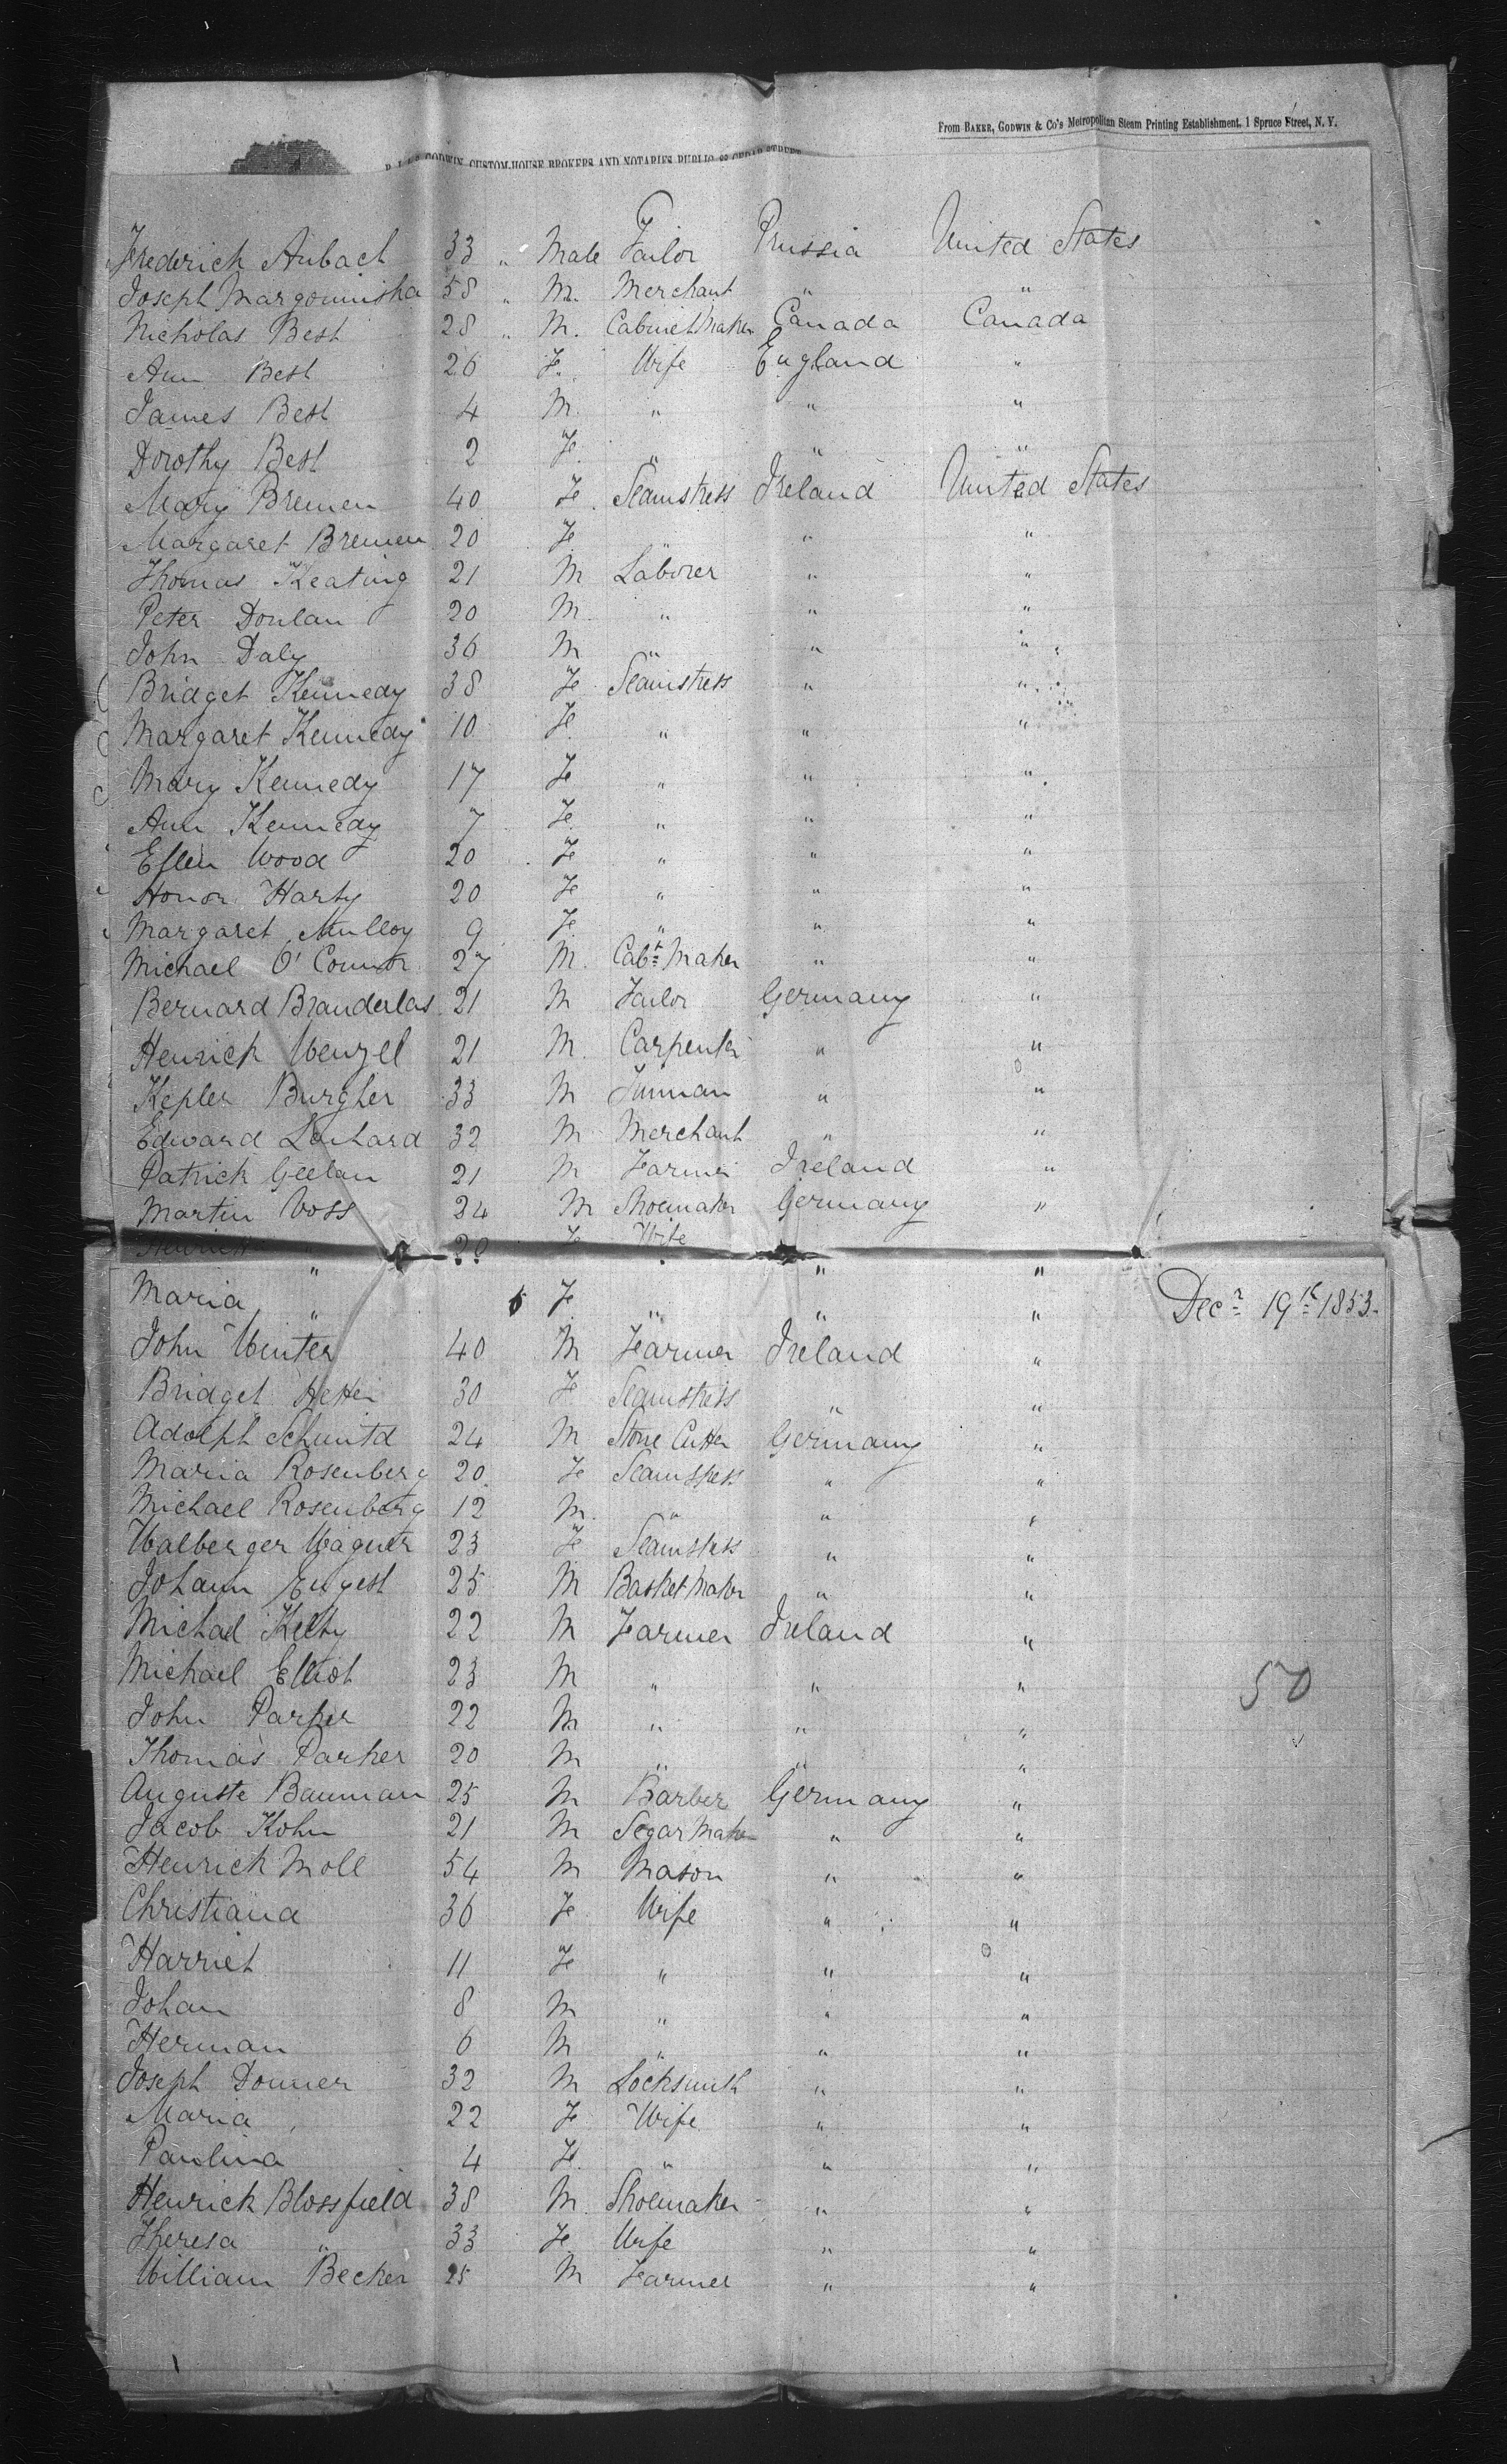 From BAKER, GODWIN & Co's Metropolitan Steam Printing Establishment. 1 Spruce Street, N. Y.
GODWIN, CUSTOM-HOUSE BROKERS AND NOTARIES PUBLIC, 88 CEDAR STREET
Frederick Aubach 33 " Male Tailor Prussia United States
Joseph Margouninska 58 " M. Merchant " "
Nicholas Best 28 " M. Cabinet Maker Canada Canada
Ann Best 26 F. Wife England "
James Best 4 M. " " "
Dorothy Best 2 F. " " "
Mary Bremen 40 F. Seamstress Ireland United States
Margaret Bremen 20 F. " " "
Thomas Keating 21 M Laborer " "
Peter Donlan 20 M. " " "
John Daly 36 M " " "
Bridget Kennedy 38 F Seamstress " "
Margaret Kennedy 10 F. " " "
Mary Kennedy 17 F " " "
Ann Kennedy 7 F. " " "
Ellen Wood 20 F " " "
Honor Harty 20 F " " "
Margaret Mulloy 9 F. " " "
Michael O'Connor 27 M. Cabt Maker " "
Bernard Branderlas 21 M Tailor Germany "
Henrich Wenzel 21 M. Carpenter " "
Kepler Burgher 33 M Tinman " "
Edward Lenhard 32 M Merchant " "
Patrick Geelan 21 M Farmer Ireland "
Martin Voss 24 M Shoemaker Germany "
" F Wife " "
Maria " 6 F. " " " Decr 19th 1853.
John Winter 40 M Farmer Ireland "
Bridget 30 F Seamstress " "
Adolph Schmitd 24 M Stone Cutter Germany "
Maria Rosenberg 20 F Seamstress " "
Michael Rosenberg 12 M. " " "
Walberger Wagner 23 F Seamstress " "
Johann Engest 25 M Basket Maker " "
Michael Kelty 22 M Farmer Ireland "
Michael Elliot 23 M " " " 50
John Parker 22 M " " "
Thomas Parker 20 M " " "
Auguste Bauman 25 M Barber Germany "
Jacob Kohn 21 M Segar Maker " "
Henrich Moll 54 M Mason " "
Christiana 36 F Wife " "
Harriet 11 F " " "
Johan 8 M " " "
Herman 6 M " " "
Joseph Donner 32 M Locksmith " "
Maria 22 F Wife " "
Paulina 4 F. " " "
Henrick Blossfield 38 M. Shoemaker " "
Theresa " 33 F. Wife " "
William Becker 25 M Farmer " "